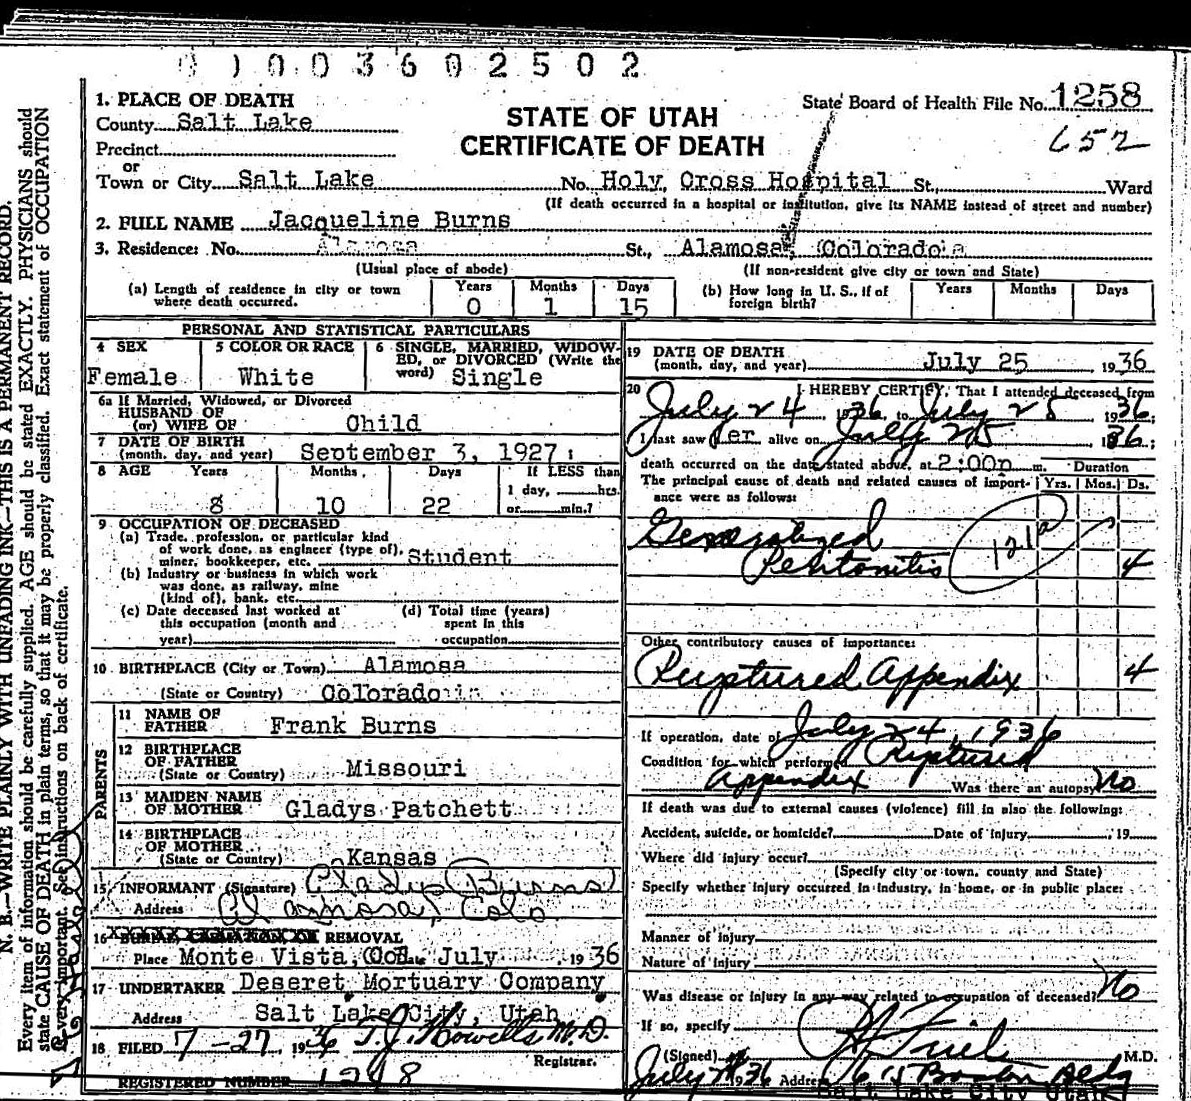 0 1 0 0 3 6 0 2 5 0 2
1. PLACE OF DEATH
County Salt Lake
Precinct
or
Town or City Salt Lake
STATE OF UTAH
CERTIFICATE OF DEATH
State Board of Health File No. 1258
652
No. Holy Cross Hospital St., Ward
(If death occurred in a hospital or institution, give its NAME instead of street and number)
2. FULL NAME Jacqueline Burns
3. Residence: No. Alamosa St., Alamosa, Colorado
(Usual place of abode) (If non-resident give city or town and State)
(a) Length of residence in city or town where death occurred. Years 0 Months 1 Days 15
(b) How long in U. S., if of foreign birth? Years Months Days
PERSONAL AND STATISTICAL PARTICULARS
4 SEX Female
5 COLOR OR RACE White
6 SINGLE, MARRIED, WIDOWED, or DIVORCED (Write the word) Single
6a If Married, Widowed, or Divorced
HUSBAND OF
(or) WIFE OF Child
7 DATE OF BIRTH
(month, day, and year) September 3, 1927
8 AGE Years Months Days If LESS than
8 10 22 1 day, hrs.
or min.?
9 OCCUPATION OF DECEASED
(a) Trade, profession, or particular kind
of work done, as engineer (type of),
miner, bookkeeper, etc. Student
(b) Industry or business in which work
was done, as railway, mine
(kind of), bank, etc.
(c) Date deceased last worked at
this occupation (month and
year)
(d) Total time (years)
spent in this
occupation
10 BIRTHPLACE (City or Town) Alamosa
(State or Country) Colorado
PARENTS
11 NAME OF
FATHER Frank Burns
12 BIRTHPLACE
OF FATHER
(State or Country) Missouri
13 MAIDEN NAME
OF MOTHER Gladys Patchett
14 BIRTHPLACE
OF MOTHER
(State or Country) Kansas
15 INFORMANT (Signature) Gladys Burns
Address Alamosa, Colo
16 BURIAL, CREMATION OR REMOVAL
Place Monte Vista, Col. July 1936
17 UNDERTAKER Deseret Mortuary Company
Address Salt Lake City, Utah
18 FILED 7-27 1936 T. J. Howells M.D.
Registrar.
REGISTERED NUMBER 1248
19 DATE OF DEATH
(month, day, and year) July 25 1936
20 I HEREBY CERTIFY, That I attended deceased from
July 24 1936, to July 25 1936;
I last saw her alive on July 25 1936;
death occurred on the date stated above, at 2:00p m. Duration
The principal cause of death and related causes of import- Yrs. Mos. Ds.
ance were as follows:
Generalized
Peritonitis 121a 4
Other contributory causes of importance:
Ruptured Appendix 4
If operation, date of July 24, 1936
Condition for which performed Ruptured
Appendix Was there an autopsy No
If death was due to external causes (violence) fill in also the following:
Accident, suicide, or homicide? Date of injury 19
Where did injury occur?
(Specify city or town, county and State)
Specify whether injury occurred in industry, in home, or in public place:
Manner of injury
Nature of injury
Was disease or injury in any way related to occupation of deceased? No
If so, specify
(Signed) M.D.
July 1936 Address 615 Boston Bldg
Salt Lake City Utah
N. B.—WRITE PLAINLY WITH UNFADING INK—THIS IS A PERMANENT RECORD.
Every item of information should be carefully supplied. AGE should be stated EXACTLY. PHYSICIANS should
state CAUSE OF DEATH in plain terms, so that it may be properly classified. Exact statement of OCCUPATION
is very important. See instructions on back of certificate.